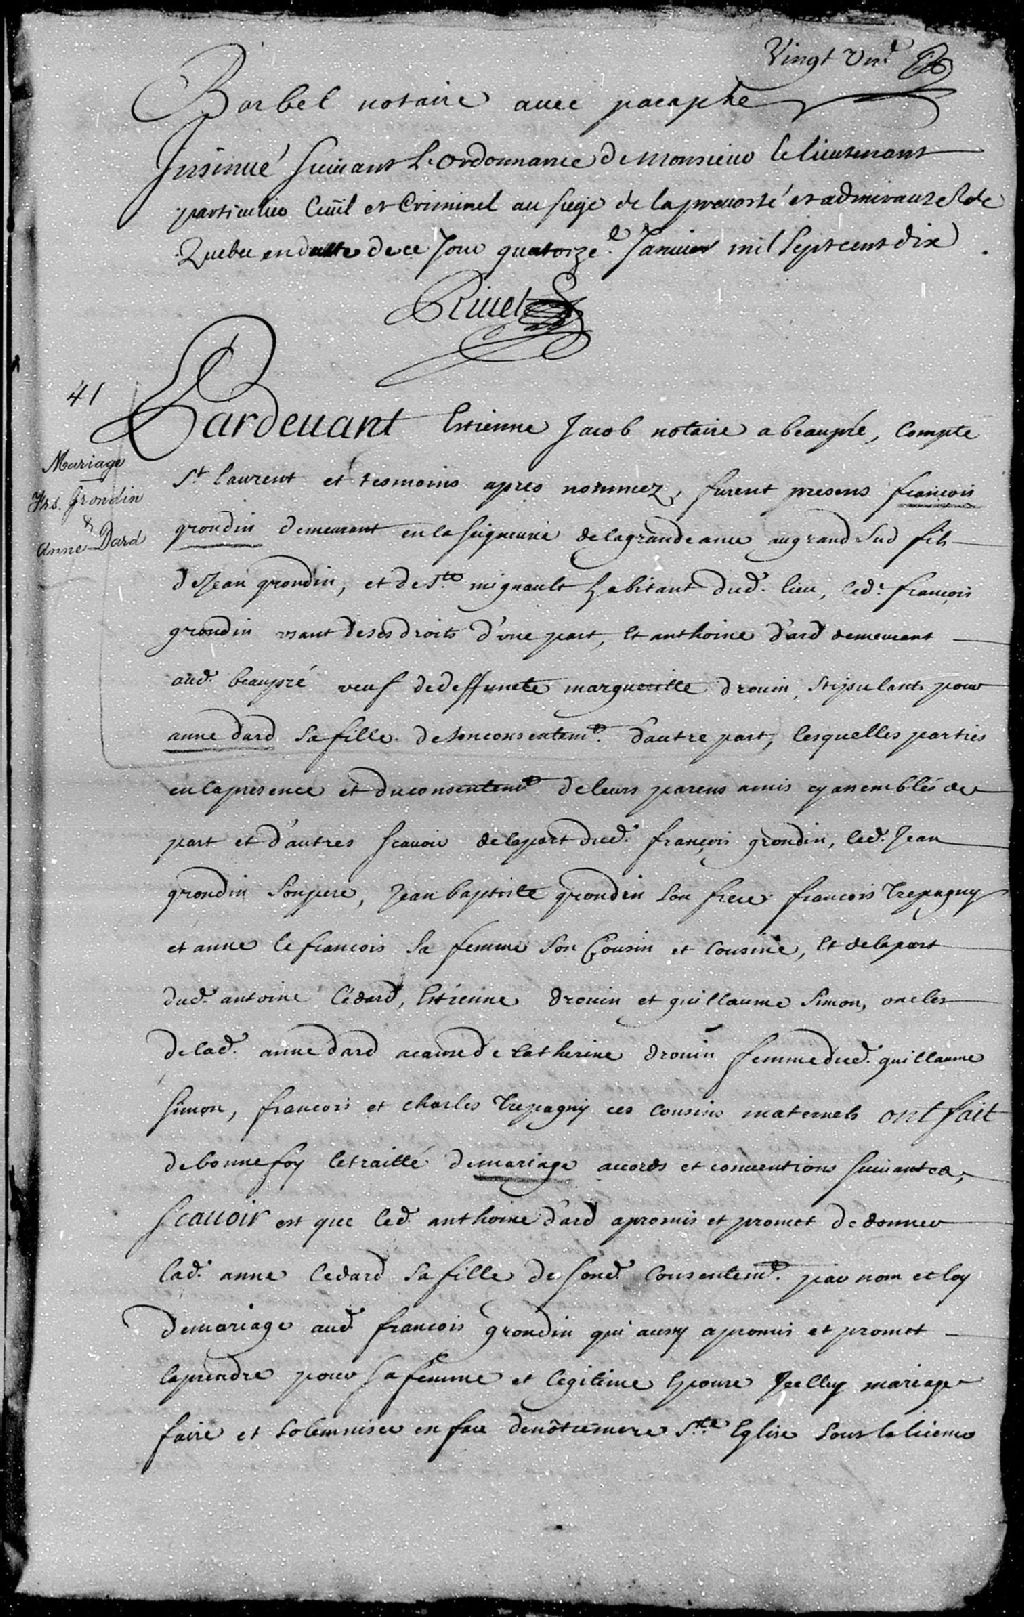 Vingt Une
Barbel notaire avec paraphe
Insinué suivant L'ordonnance de Monsieur le lieutenant
particulier Civil et Criminel au siege de la prevosté et admirauté de
Quebec en datte de ce Jour quatorze Janvier mil sept cent dix
Rivet
41
Mariage
Frs. Grondin
&
Anne Dard
Pardevant Estienne Jacob notaire a beaupré, Compté
St laurent et tesmoins apres nommez, furent presens francois
grondin demeurant en la seigneurie de la grande ance au grand Sud fils
de Jean grondin, et de Ste mignault habitant dud. lieu, led. francois
grondin usant de ses droits d'une part, Et anthoine d'ard demeurant
aud. beaupré veuf de deffuncte margueritte drouin, stipulant pour
anne dard sa fille de son consentemt. d'autre part, lesquelles parties
en la presence et du consentemt de leurs parens amis cy assemblés de
part et d'autres scavoir de la part dud. françois grondin, led. Jean
grondin son pere, Jean baptiste grondin son frere francois Trepagny
et anne le francois sa femme son Cousin et Cousine, Et de la part
dud. antoine Cedard, Estienne drouin et guillaume Simon, oncles
de lad. anne dard a cause de Catherine drouin femme dud. guillaume
simon, francois et charles Trepagny ces cousins maternels ont fait
de bonne foy le traitté de mariage accords et conventions suivantes,
Scavoir est que led. anthoine d'ard a promis et promet de donner
lad. anne Cedard sa fille de sond. Consentemt. par nom et loy
de mariage aud. francois grondin qui aussy a promis et promet
la prendre pour sa femme et legitime Epouse Jcelluy mariage
faire et solemniser en face de nôtre mere Ste Eglise sous la licence